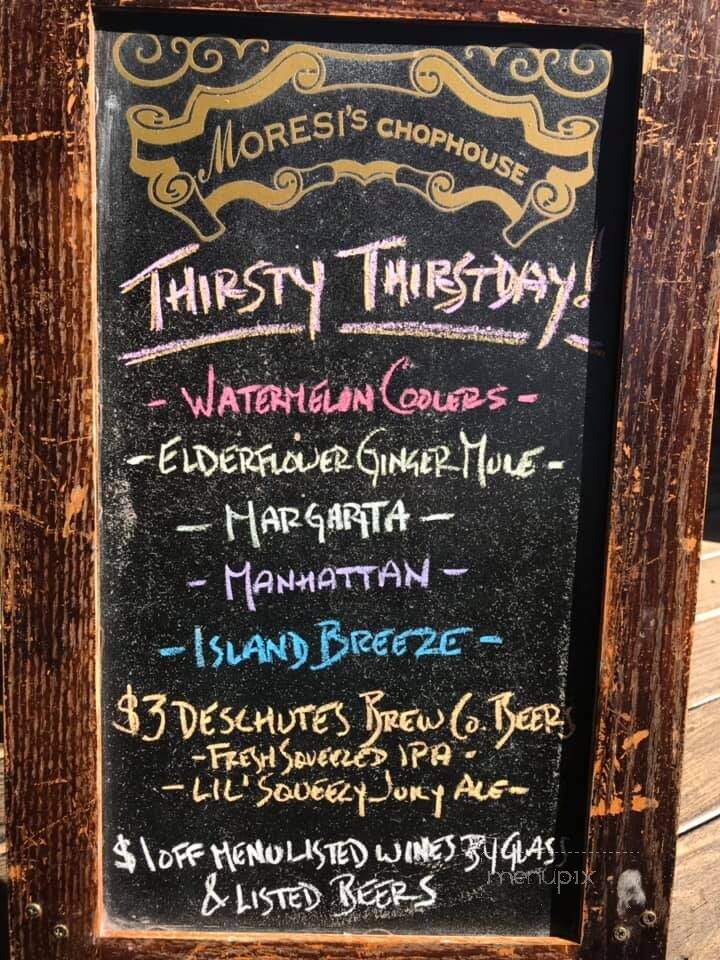 MORESI'S CHOPHOUSE
THIRSTY THIRSTDAY!
- WATERMELON COOLERS -
- ELDERFLOWER GINGER MULE -
- MARGARITA -
- MANHATTAN -
- ISLAND BREEZE -
$3 DESCHUTES BREW CO. BEERS
- FRESH SQUEEZED IPA -
- LIL' SQUEEZY JUICY ALE -
$1 OFF MENU LISTED WINES BY GLASS
& LISTED BEERS
menupix